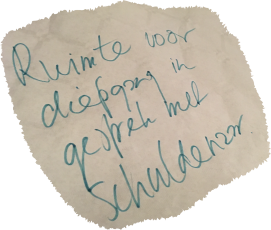 Ruimte voor
diepgang in
gesprek met
Schuldenaar.